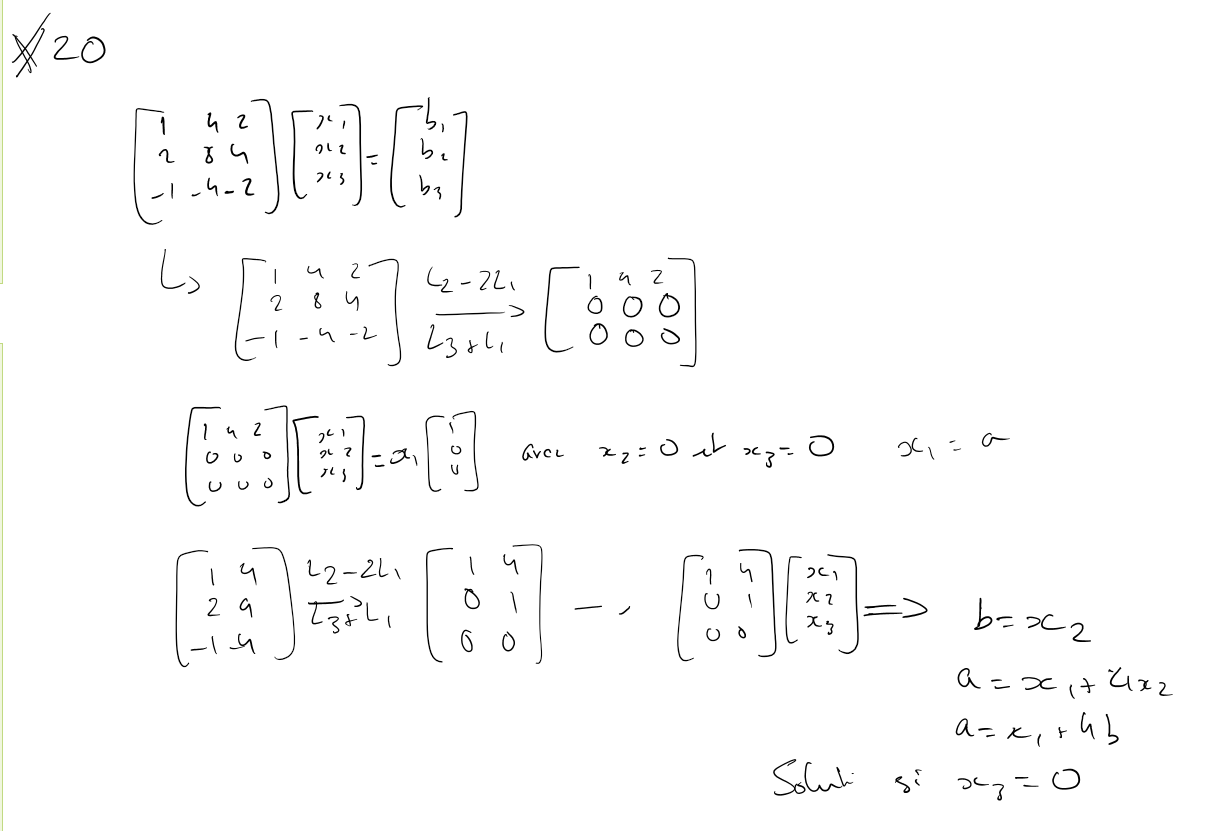 20
[1 4 2; 2 8 4; -1 -4 -2] [x1; x2; x3] = [b1; b2; b3]
↳ [1 4 2; 2 8 4; -1 -4 -2] L2-2L1 → L3+L1 [1 4 2; 0 0 0; 0 0 0]
[1 4 2; 0 0 0; 0 0 0] [x1; x2; x3] = x1 [1; 0; 0] avec x2=0 et x3=0 x1=a
[1 4; 2 9; -1 -4] L2-2L1 → L3+L1 [1 4; 0 1; 0 0] — [1 4; 0 1; 0 0] [x1; x2; x3] ⟹ b=x2
a=x1+4x2
a=x1+4b
Soluti si x3=0